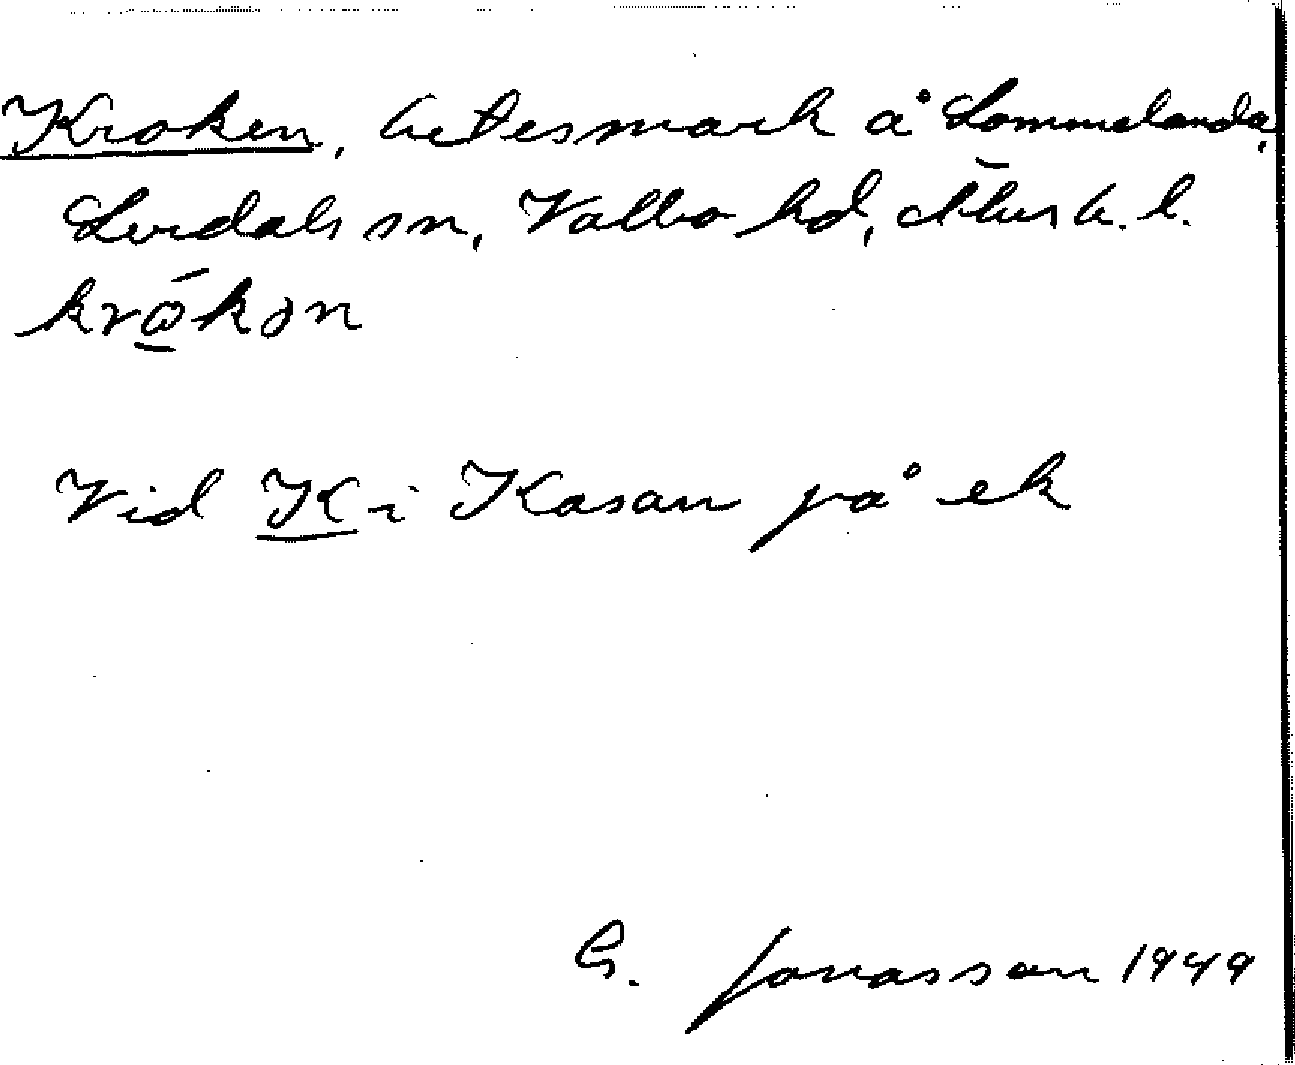 Kroken, betesmark å Lommelanda,
Lerdals sn, Valbo hd, Älvsb. l.
krω̱̄kən
Vid K i Kasan på ek
G. Jonasson 1949